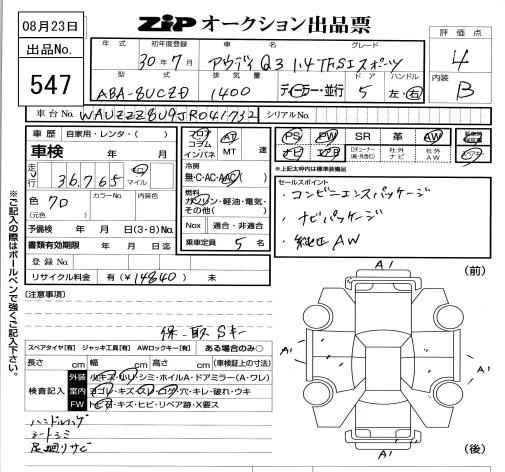 08月23日
ZIPオークション出品票
評価点
4
出品No.
547
年式 初年度登録 車名 グレード
30年7月 アウディ Q3 1.4 TFSI スポーツ
型式 排気量 ドア ハンドル
ABA-8UCZD 1400 ディーラー・並行 5 左・右
内装
B
車台No. WAUZZZ8U9JR041732 シリアルNo.
車歴 自家用・レンタ・( )
車検 年 月
走行 36,765 キロ マイル
色 70 カラーNo. 内装色
(元色)
予備検 年 月 日(3・6)No.
書類有効期限 年 月 日迄
登録No.
リサイクル料金 有(¥14840) 無
フロア コラム インパネ
AT MT 速
冷房
無・C・AC・AAC
燃料
ガソリン・軽油・電気・その他( )
Nox 適合・非適合
乗車定員 5 名
PS PW SR 革 AW
ナビ エアB
社外ナビ 社外AW
*上記太枠内は標準装備品
セールスポイント
・コンビニエンスパッケージ
・ナビパッケージ
・純正AW
※ご記入の際はボールペンで強くご記入下さい。
[注意事項]
保-取 Sキー
スペアタイヤ[有] ジャッキ工具[有] AWロックキー[有] ある場合のみ〇
長さ cm 幅 cm 高さ cm (車検証上の寸法)
検査記入
外装 小キズ・小凹・シミ・ホイルA・ドアミラー(A・ワレ)
室内 ヨゴレ・キズ・スレ・コゲ穴・キレ・破れ・ウキ
FW トビ石・キズ・ヒビ・リペア跡・X要ス
ハンドルスレ
シートシミ
足廻リサビ
A1
(前)
A1
A1
A1
(後)